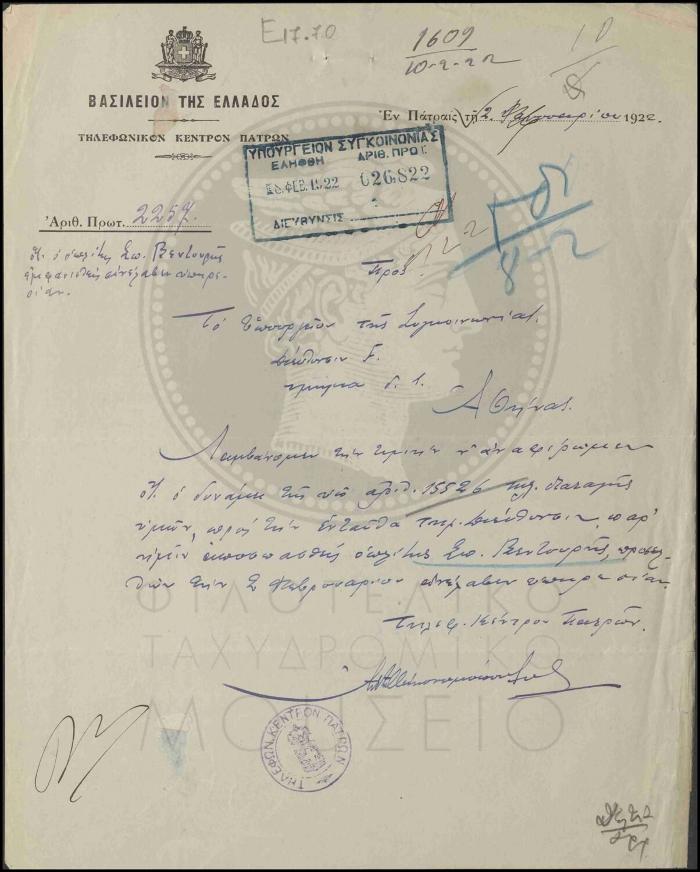 E17.70
1609
10-2-22
ΒΑΣΙΛΕΙΟΝ ΤΗΣ ΕΛΛΑΔΟΣ
ΤΗΛΕΦΩΝΙΚΟΝ ΚΕΝΤΡΟΝ ΠΑΤΡΩΝ
Ἐν Πάτραις τῇ 2 Φεβρουαρίου 1922
ΥΠΟΥΡΓΕΙΟΝ ΣΥΓΚΟΙΝΩΝΙΑΣ
ΕΛΗΦΘΗ ΑΡΙΘ. ΠΡΩΤ.
ΦΕΒ. 1922 026822
ΔΙΕΥΘΥΝΣΙΣ
Ἀριθ. Πρωτ. 2257.
Ὅτι ὁ ὁπλίτης Σπ. Βεντουρῆς
ἐμφανισθεὶς ἀνέλαβεν ὑπηρε-
σίαν.
8-2
Πρὸς
Τὸ Ὑπουργεῖον τῆς Συγκοινωνίας.
Διεύθυνσιν
τμῆμα
Ἀθήνας.
Λαμβάνομεν τὴν τιμὴν ν' ἀναφέρωμεν
ὅτι ὁ δυνάμει τῆς ὑπ' ἀριθ. 15526 τηλ. διαταγῆς
ὑμῶν, πρὸς τὴν ἐνταῦθα Τηλ. Διεύθυνσιν, παρ'
ἡμῖν ἀποσπασθεὶς ὁπλίτης Σπ. Βεντουρῆς, προσελ-
θὼν τὴν 2 Φεβρουαρίου ἀνέλαβεν ὑπηρεσίαν.
Τηλεφ. Κέντρον Πατρῶν.
ΤΗΛΕΦΩΝ. ΚΕΝΤΡΟΝ ΠΑΤΡΩΝ
ΦΙΛΟΤΕΛΙΚΟ
ΤΑΧΥΔΡΟΜΙΚΟ
ΜΟΥΣΕΙΟ